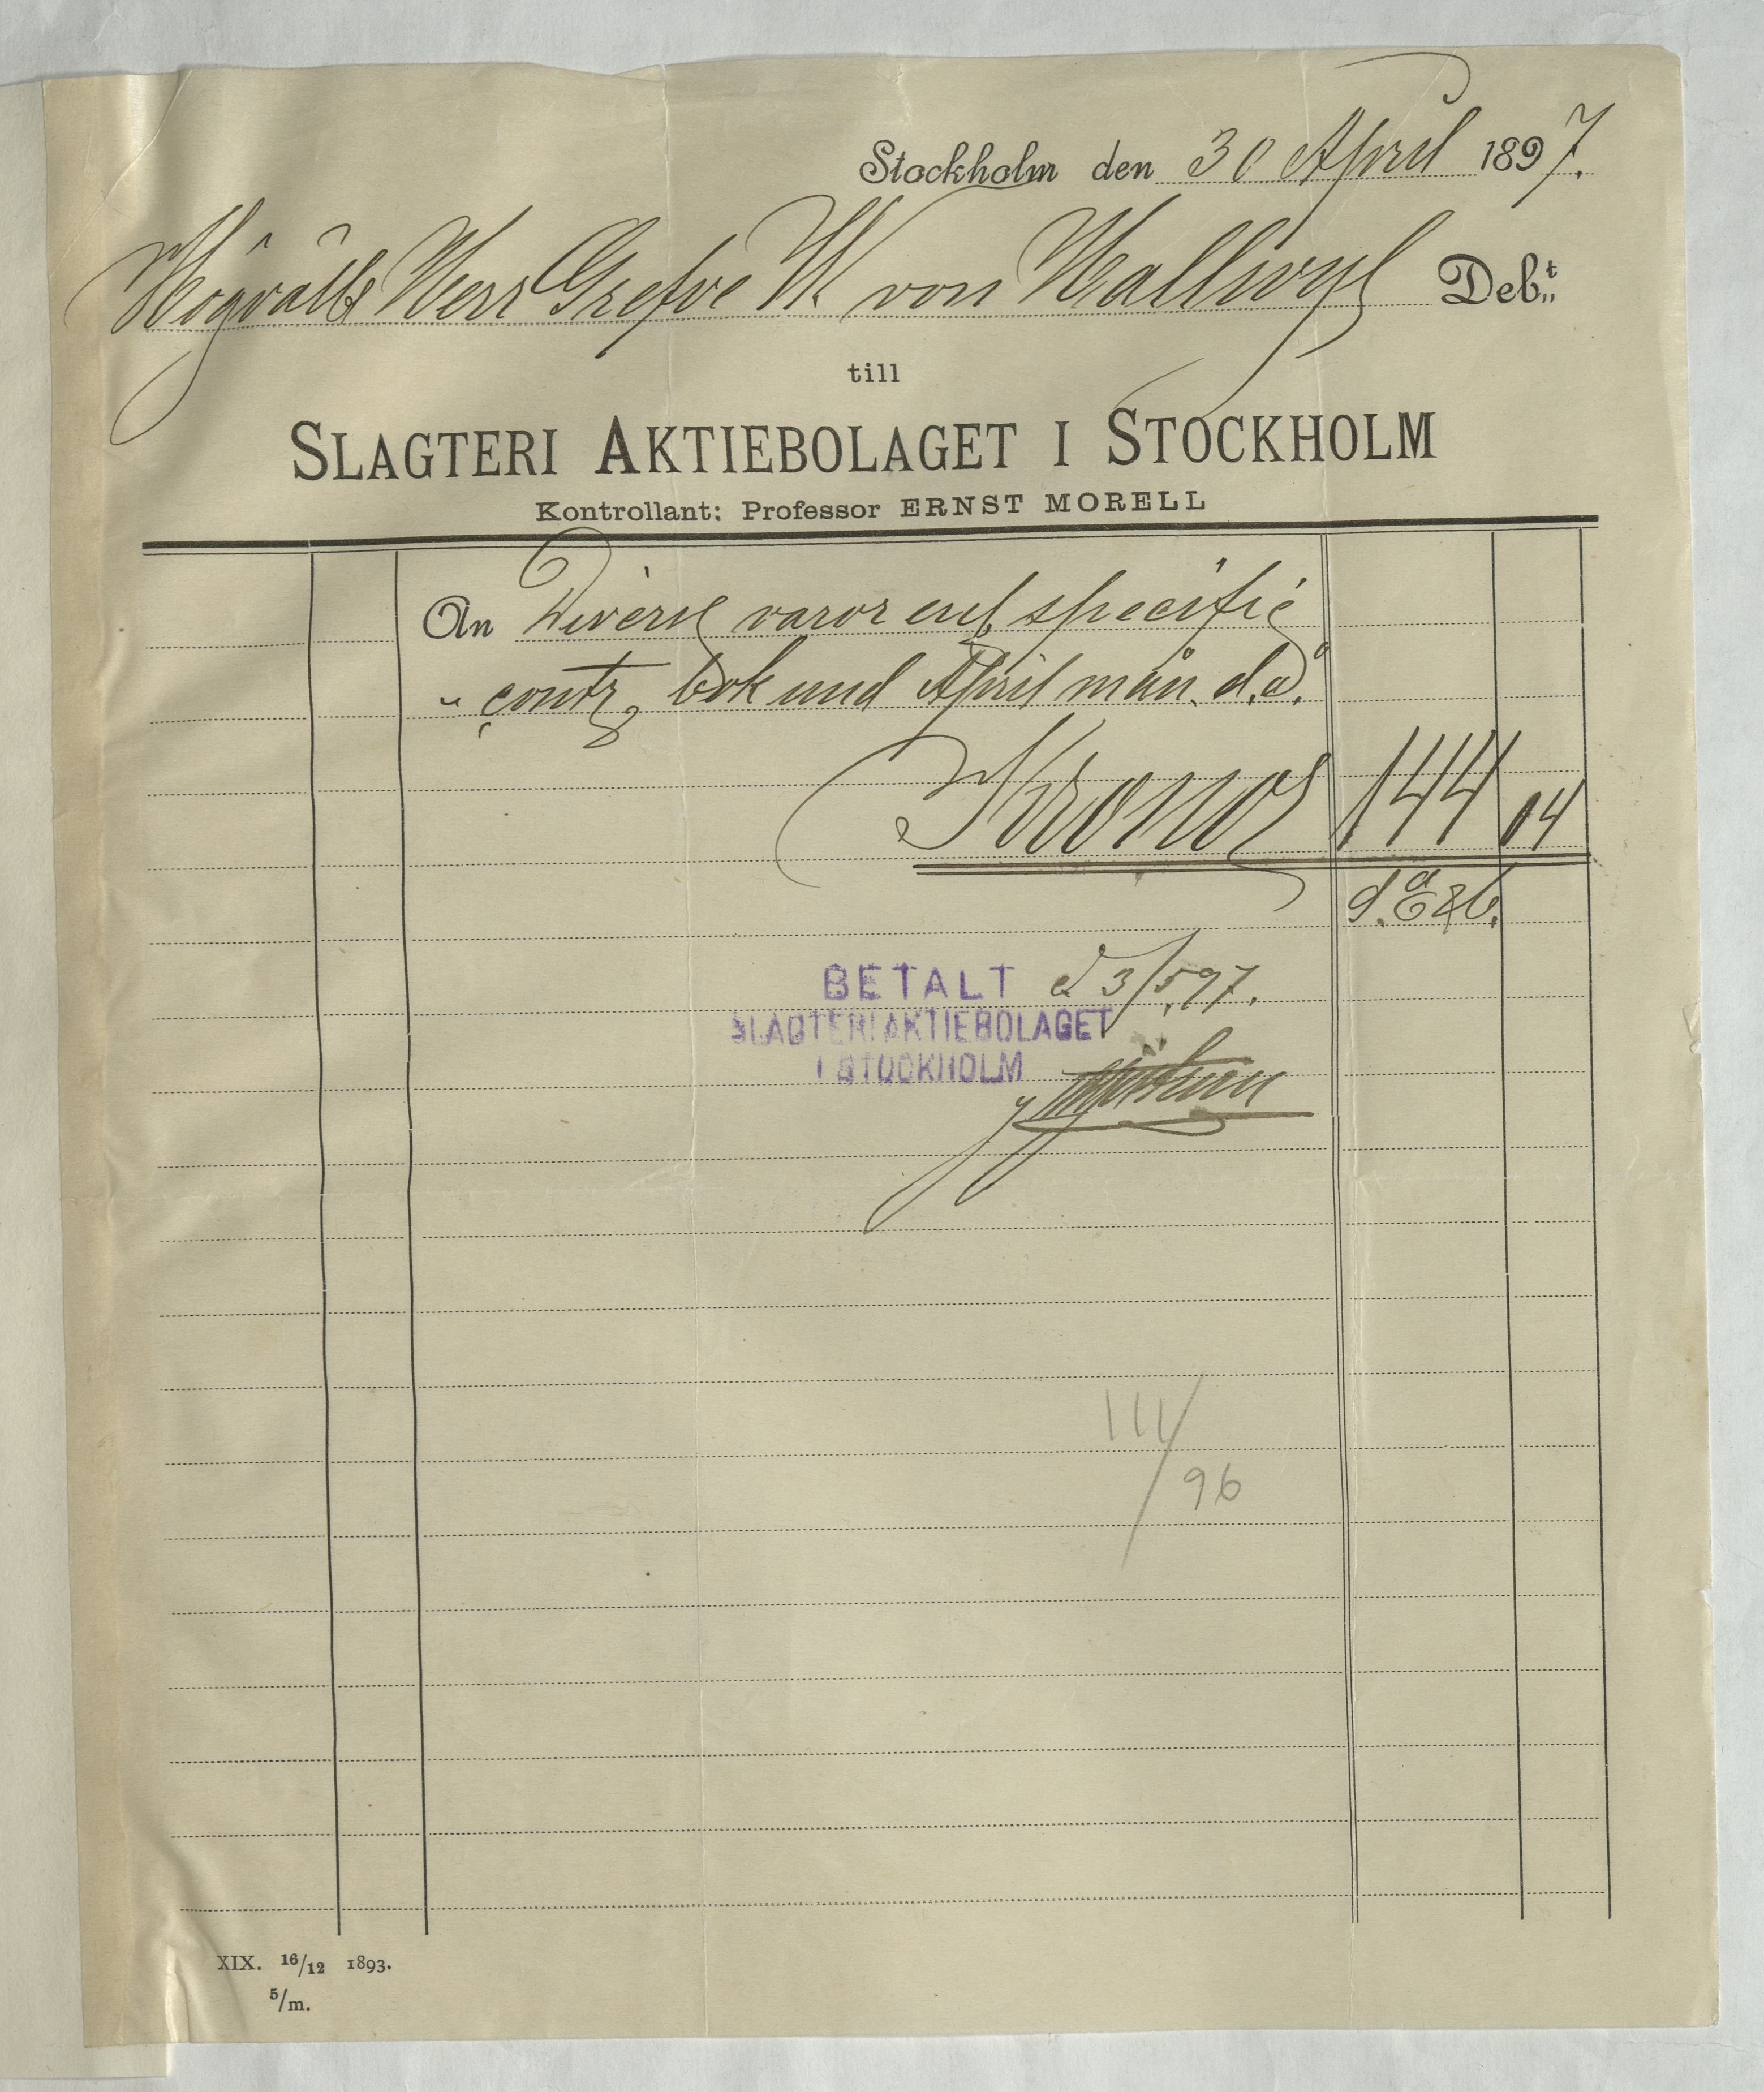 Stockholm den 30 April 1897.
Högvälb Herr Grefve W von Hallwyl Deb:t
till
SLAGTERI AKTIEBOLAGET I STOCKHOLM
Kontrollant: Professor ERNST MORELL
An Diverse varor enl. specific
" contr bok und April mån. d.å.
Kronor 144 04
BETALT d 3/5 97.
SLAGTERIAKTIEBOLAGET
I STOCKHOLM
111/96
XIX. 16/12 1893.
5/m.